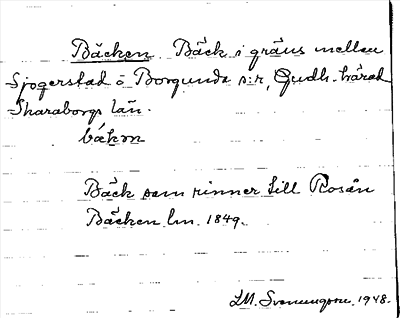 Bäcken Bäck i gräns mellan
Sjogerstad o Borgunda s:r, Gudh. härad
Skaraborgs län.
båkən
Bäck som rinner till Rosån
Bäcken lm. 1849.
1948.